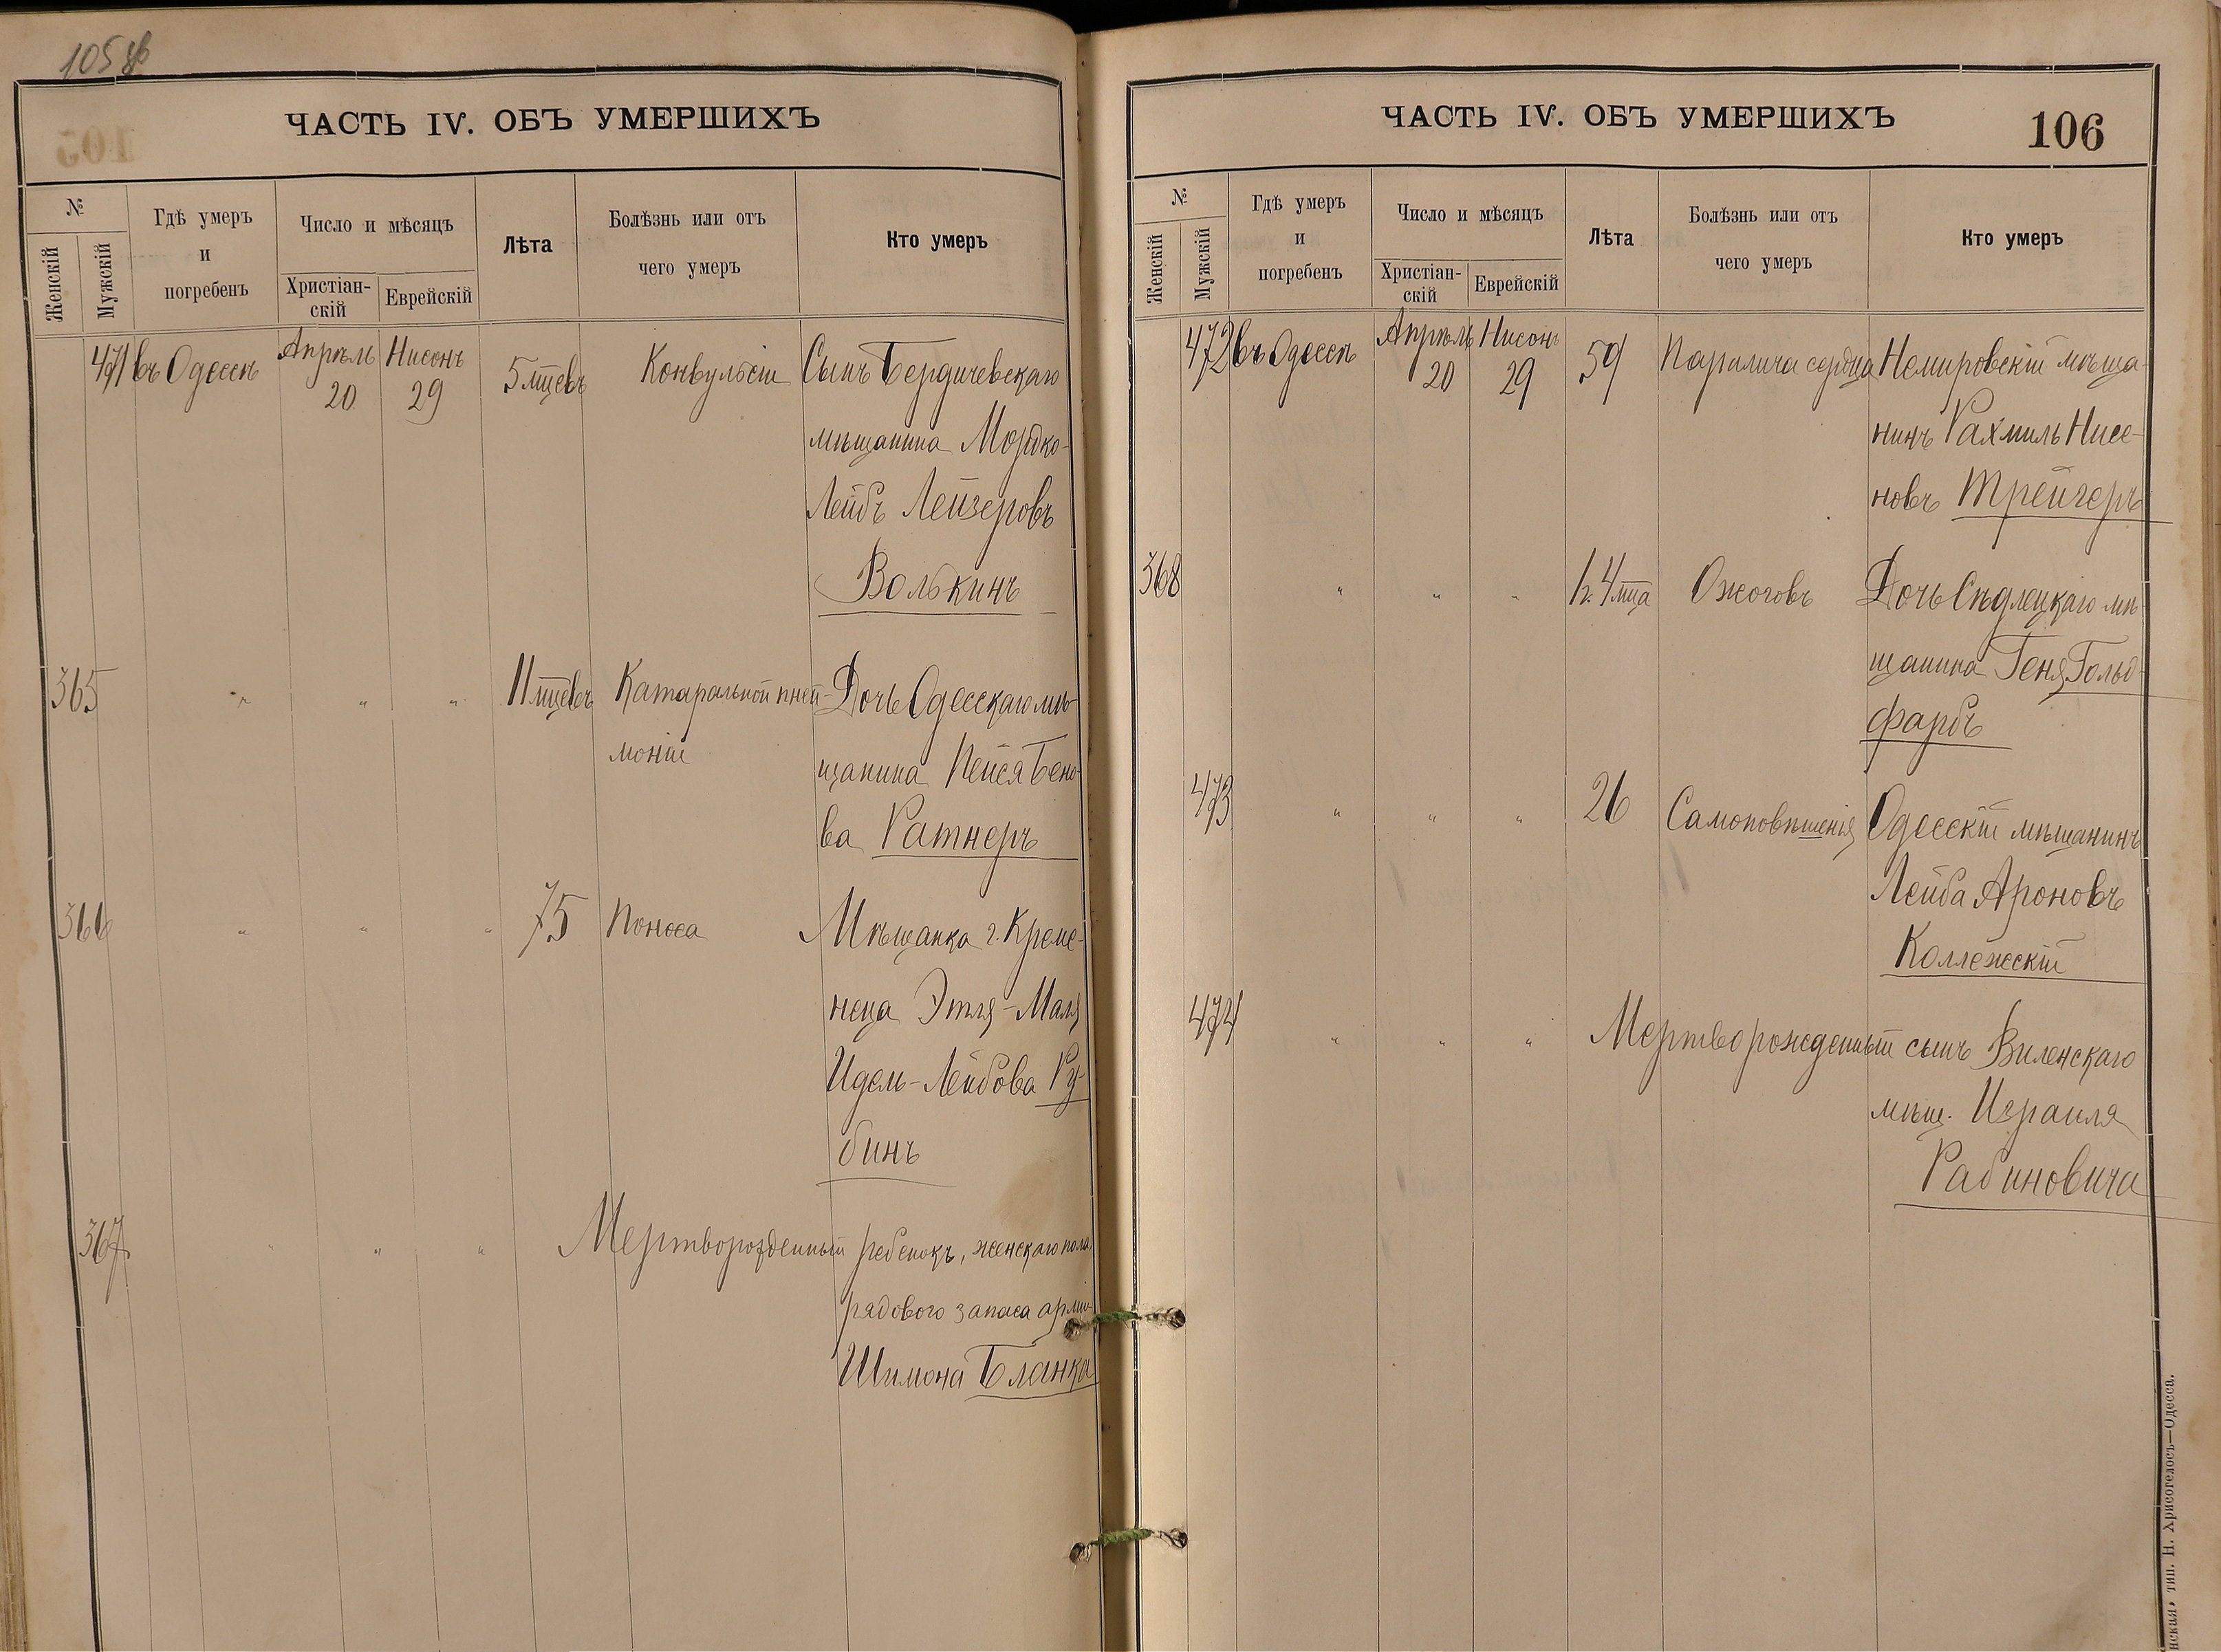 105 об
ЧАСТЬ IV. ОБЪ УМЕРШИХЪ
№
Женскій
Мужскій
Гдѣ умеръ
и
погребенъ
Число и мѣсяцъ
Христіан-
скій
Еврейскій
Лѣта
Болѣзнь или отъ
чего умеръ
Кто умеръ
471 въ Одессѣ Апрѣль 20 Нисонъ 29 5 мцевъ Конвульсіи Сынъ Бердичевскаго
мѣщанина Мордко-
Лейбъ Лейзеровъ
Волькинъ
365 " " " 11 мцевъ Катаральной пней- Дочь Одесскаго мѣ-
моніи щанина Пейся Бено-
ва Ратнеръ
366 " " " 75 Поноса Мѣщанка г. Креме-
неца Этля-Маля
Идель-Лейбова Ру-
бинъ
367 " " " Мертворожденный ребенокъ, женскаго пола,
рядового запаса арміи
Шимона Бланка
ЧАСТЬ IV. ОБЪ УМЕРШИХЪ
106
№
Женскій
Мужскій
Гдѣ умеръ
и
погребенъ
Число и мѣсяцъ
Христіан-
скій
Еврейскій
Лѣта
Болѣзнь или отъ
чего умеръ
Кто умеръ
472 въ Одессѣ Апрѣль 20 Нисонъ 29 59 Паралича сердца Немировскій мѣща-
нинъ Рахмиль Нисе-
новъ Трейгеръ
368 " " " 1 г. 4 мца Ожоговъ Дочь Сѣдлецкаго мѣ-
щанина Геня Гольд-
фарбъ
473 " " " 26 Самоповѣшенія Одесскій мѣщанинъ
Лейба Ароновъ
Коллежскій
474 " " " Мертворожденный сынъ Виленскаго
мѣщ. Израиля
Рабиновича
тип. Н. Хрисогелосъ—Одесса.